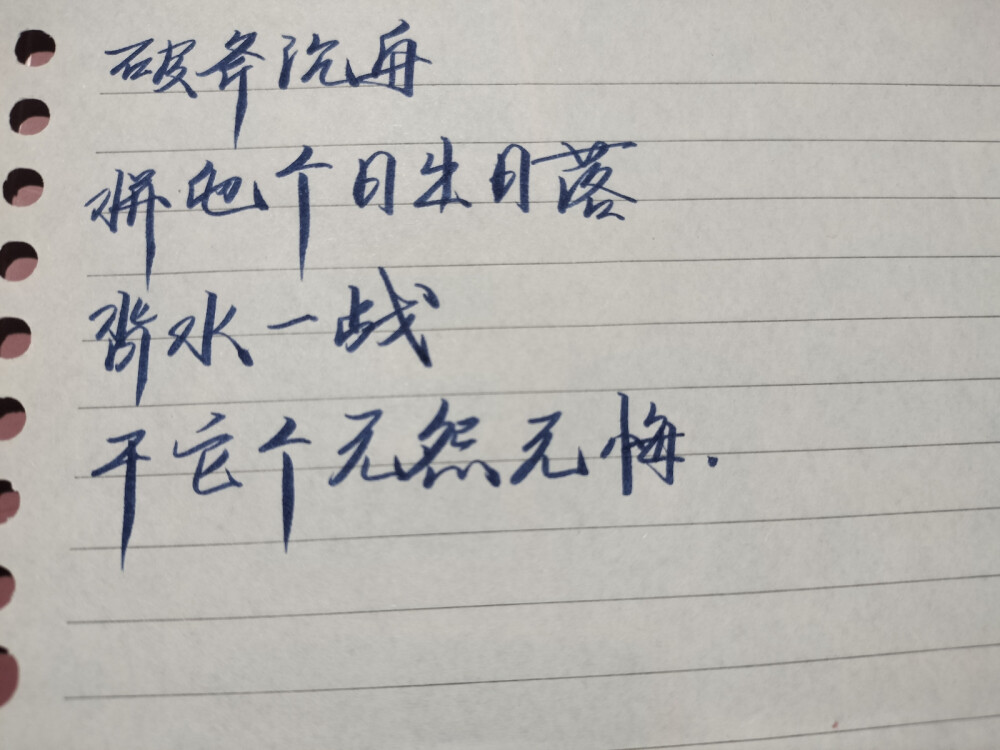 破斧沉舟
拼它个日出日落
背水一战
干它个无怨无悔.